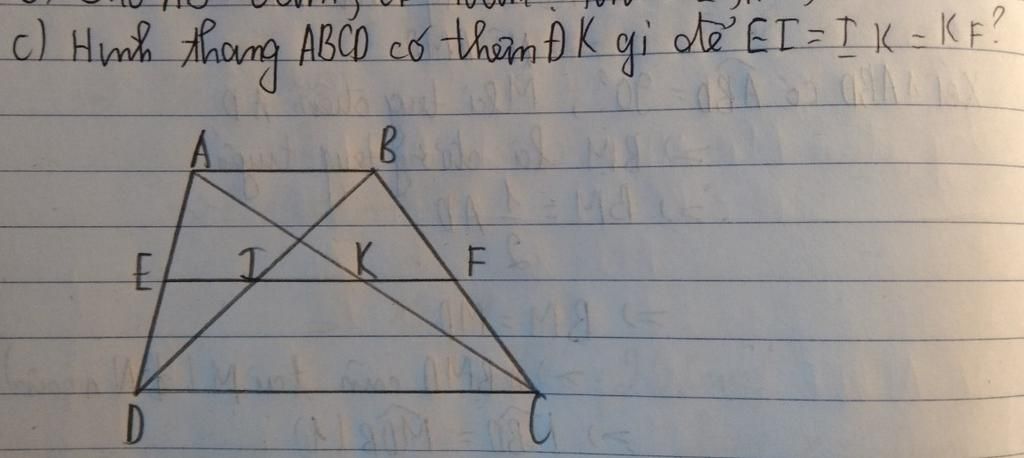 c) Hình thang ABCD có thêm ĐK gì để EI = IK = KF?
A B
E I K F
D C